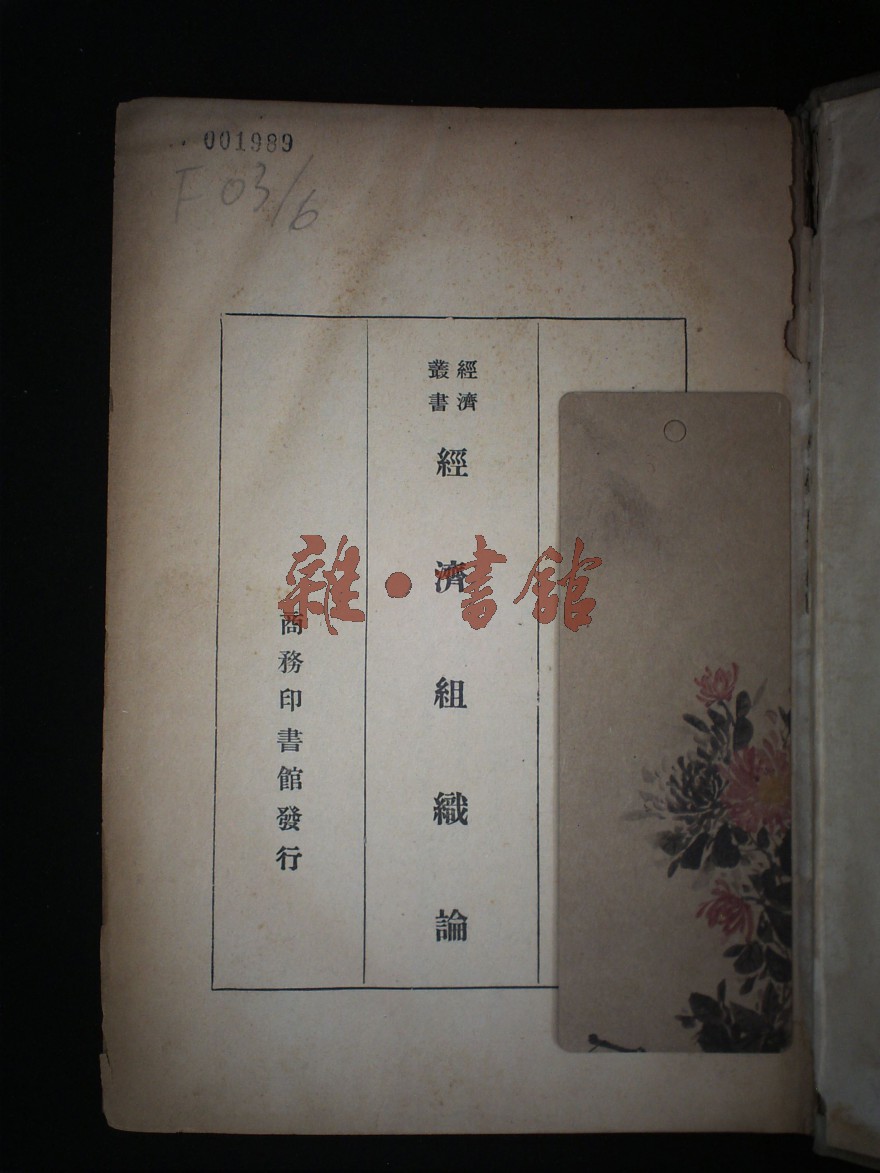 001989
F03/6
經濟
叢書
經濟組織論
商務印書館發行
雜·書館